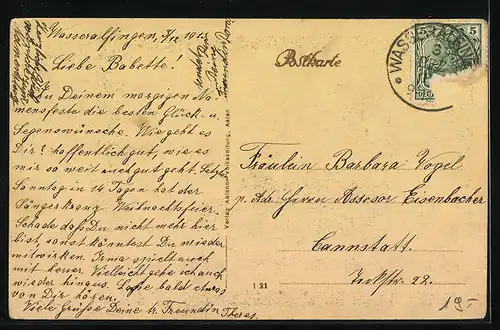 Wasseralfingen, 3/12 1913
Liebe Babette!
Zu Deinem morgigen Na-
mensfeste die besten Glück- u.
Segenswünsche. Wie geht es
Dir? hoffentlich gut, wie es
mir so weit auch gut geht.
Sonntag in 14 Tagen hat der
Sängerkranz Weihnachtsfeier.
Schade daß Du nicht mehr hier
bist, sonst könntest Du wieder
mitwirken. Irma spielt auch
mit heuer. Vielleicht gehe ich auch
wieder hinaus. Lasse bald etwas
von Dir hören.
Viele Grüße Deine tr. Freundin Theres.
Verlag Aalen
Postkarte
5 5
WASSERALFING
Fräulein Barbara Vogel
p. Adr. Herrn Assesor Eisenbacher
Cannstatt.
str. 22.
1 31
19.-